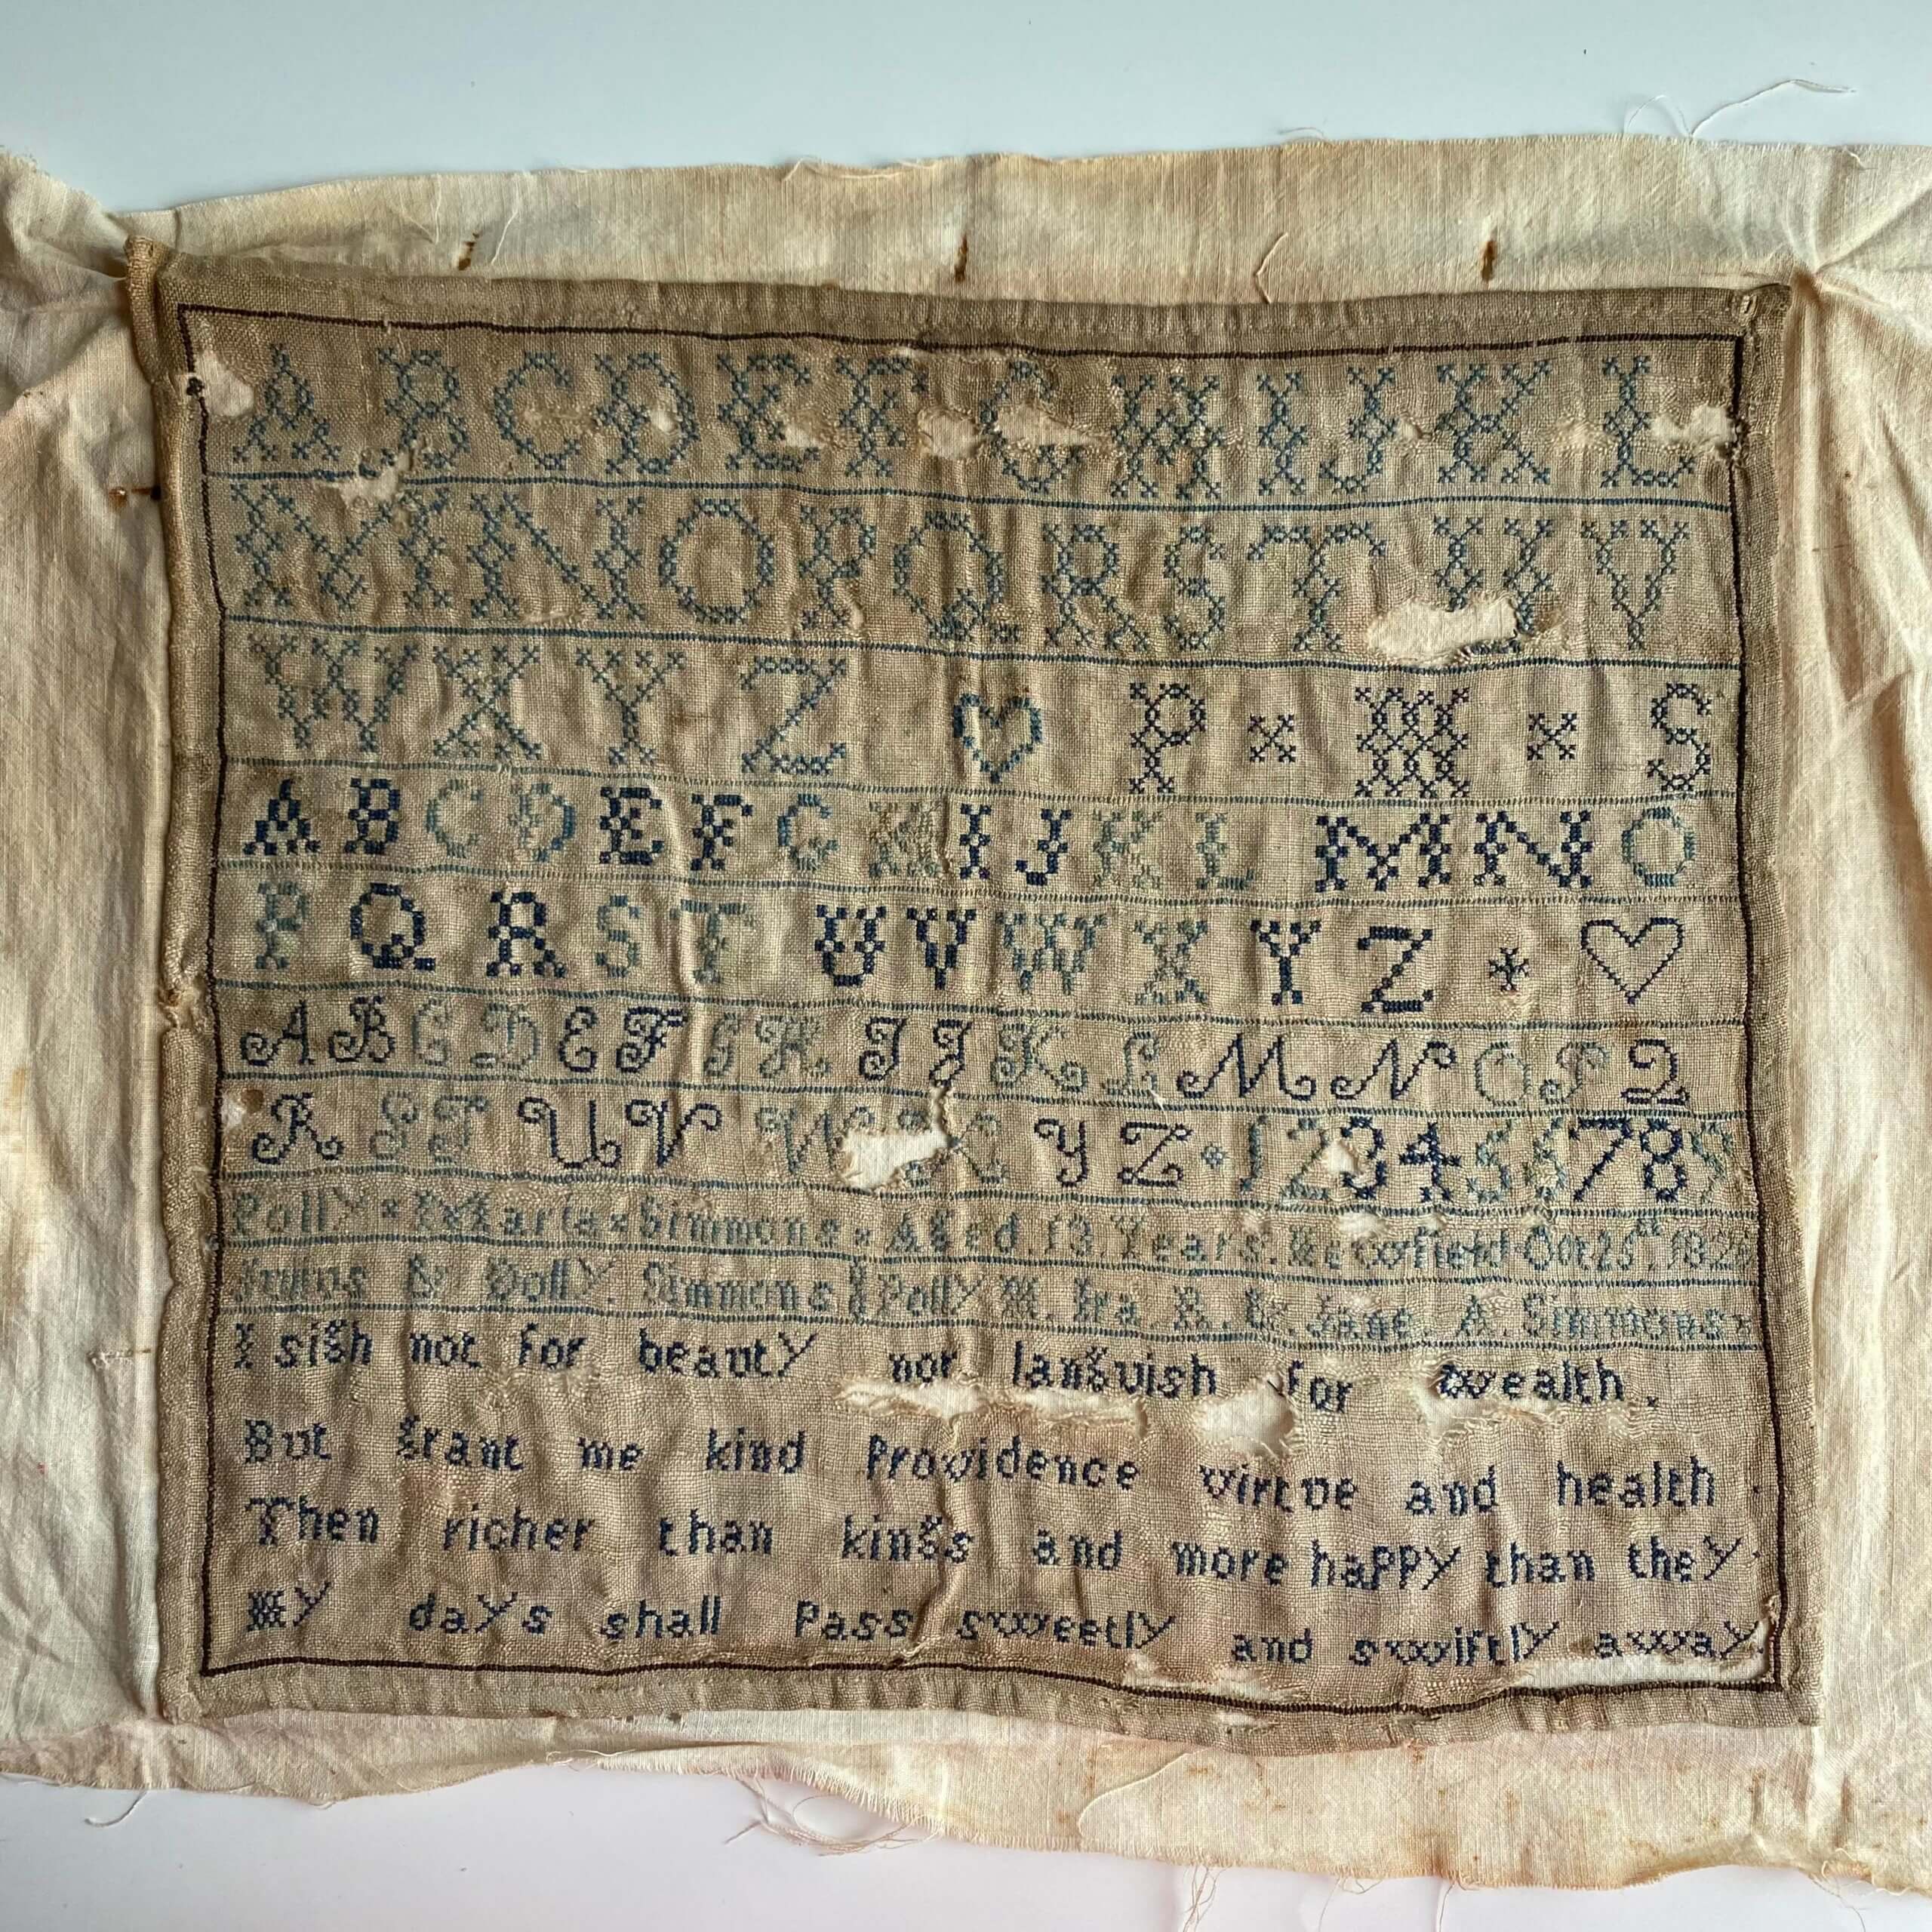 A B C D E F G H I J K L
M N O P Q R S T U V
W X Y Z ♡ P × M × S
A B C D E F G H I J K L M N O
P Q R S T U V W X Y Z * ♡
A B C D E F G H I J K L M N O P Q
R S T U V W X Y Z 1 2 3 4 5 6 7 8 9
Polly × Maria × Simmons × Aged. 13. Years. Oct 25th. 182
& Polly. Simmons Polly M. Ira. R. & Jane A. Simmons
I sigh not for beauty nor languish for wealth.
But grant me kind Providence virtue and health
Then richer than kings and more happy than they.
My days shall Pass sweetly and swiftly away.